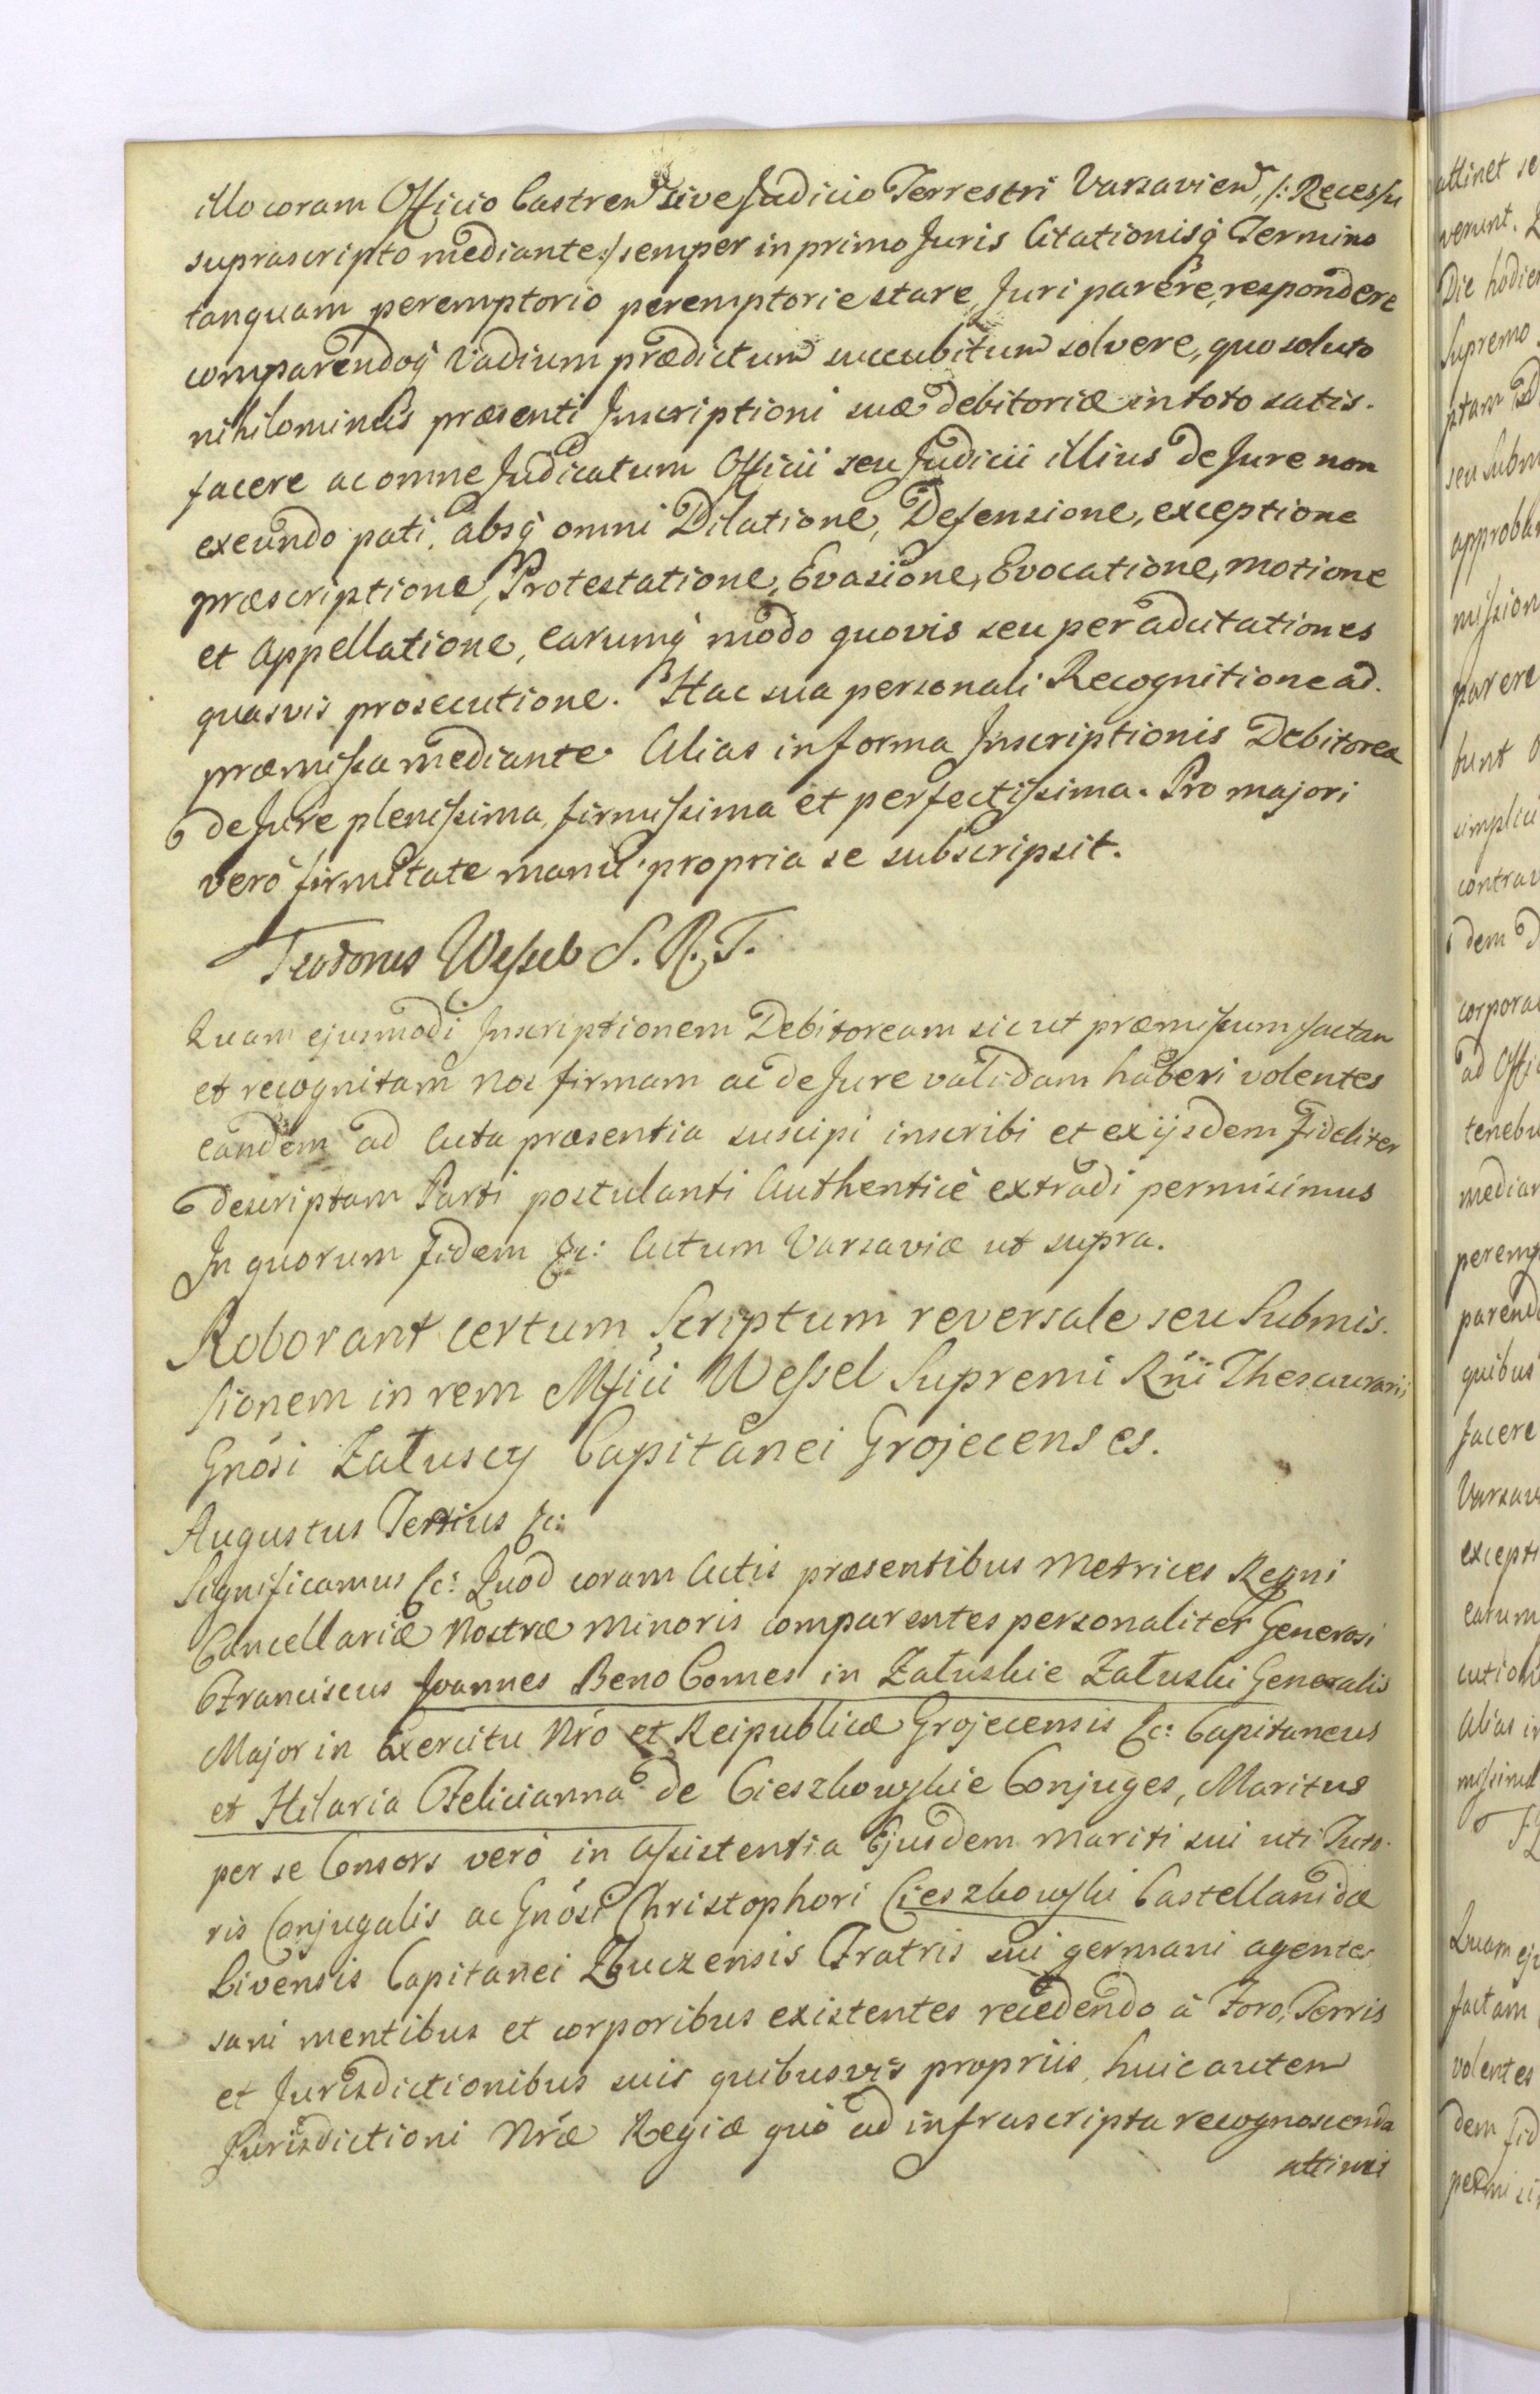 illo coram Officio Castren sive Judicio Terrestri Varsavien, /: Recessu
suprascripto mediante :/ semper in primo Juris Citationisq Termino
tanquam peremptorio peremptorie stare, Juri parere, respondere
comparendoq Vadium prædictum succubitum solvere, quo soluto
nihilominus præsenti Inscriptioni suæ debitoriæ in toto satis-
facere ac omne Judicatum Officii seu Judicii illius de Jure non
exeundo pati, absq omni Dilatione, Defensione, exceptione
præscriptione, Protestatione, Evasione, Evocatione, motione
et appellatione, earumq modo quovis seu per adcitationes
quasvis prosecutione. Hac sua personali Recognitione ad.
præmissa mediante. Alias in forma Inscriptionis Debitorea
de Jure plenissima, firmissima et perfectissima. Pro majori
verò firmitate manu propria se subscripsit.
Teodorus Wessel S. R. T.
Quam ejusmodi Inscriptionem Debitoream sicut præmissum factam
et recognitam nos firmam ac de Jure validam haberi volentes
eandem ad Acta præsentia suscipi inscribi et ex ijsdem fideliter
descriptam Parti postulanti Authenticè extradi permisimus
In quorum fidem &c: Actum Varsaviæ ut supra.
Roborant certum Scriptum reversale seu Submis-
sionem in rem Mfici Wessel Supremi Rni Thesaurarii
Gnosi Załuscy Capitanei Grojecenses.
Augustus Tertius &c:
Significamus &c: Quod coram Actis præsentibus Metrices Regni
Cancellariæ Nostræ Minoris comparentes personaliter Generosi
Franciscus Joannes Beno Comes in Załuskie Załuski Generalis
Major in Exercitu Nro et Reipublicæ Grojecensis &c: Capitaneus
et Hilaria Felicianna de Cieszkowskie Conjuges, Maritus
per se Consors verò in Assistentia Ejusdem mariti sui uti Tuto-
ris Conjugalis ac Gnosi Christophori Cieszkowski Castellanidæ
Livensis Capitanei Kluczensis Fratris sui germani agentes
sani mentibus et corporibus existentes recedendo à Foro, Terris
et Jurisdictionibus suis quibusvis propriis, huic autem
Jurisdictioni Nræ Regiæ quò ad infrascripta recognoscenda